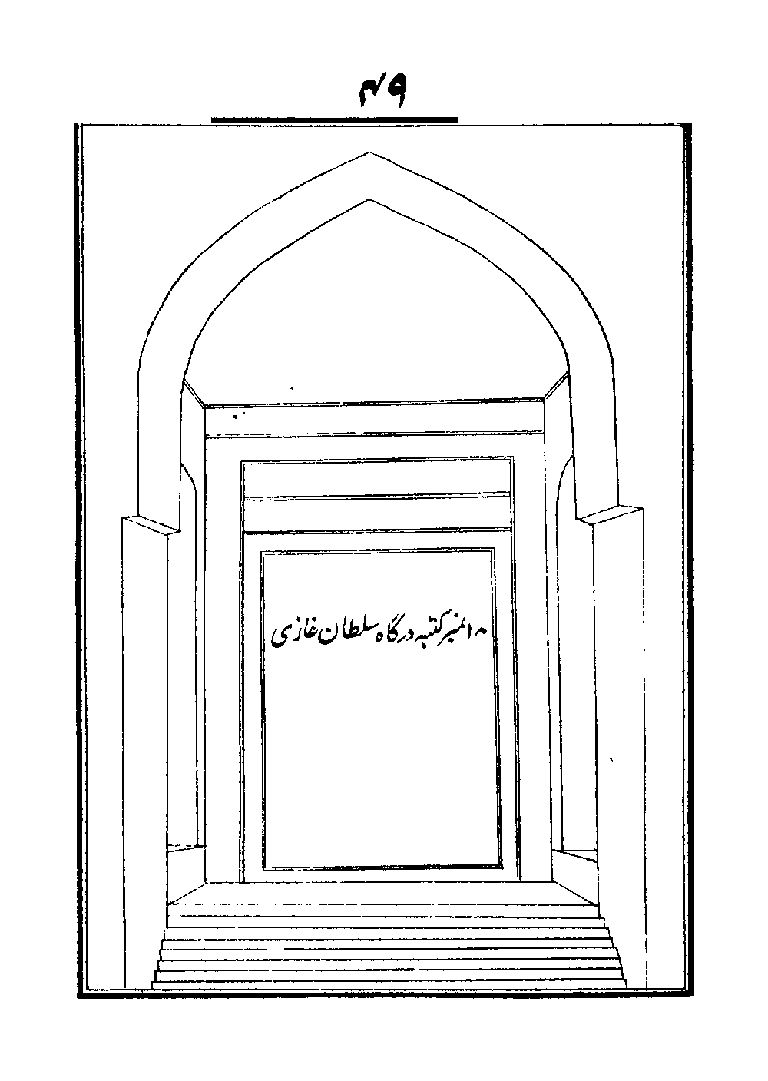 ۴۹
۱۰ نمبر کتبہ درگاہ سلطان غازی